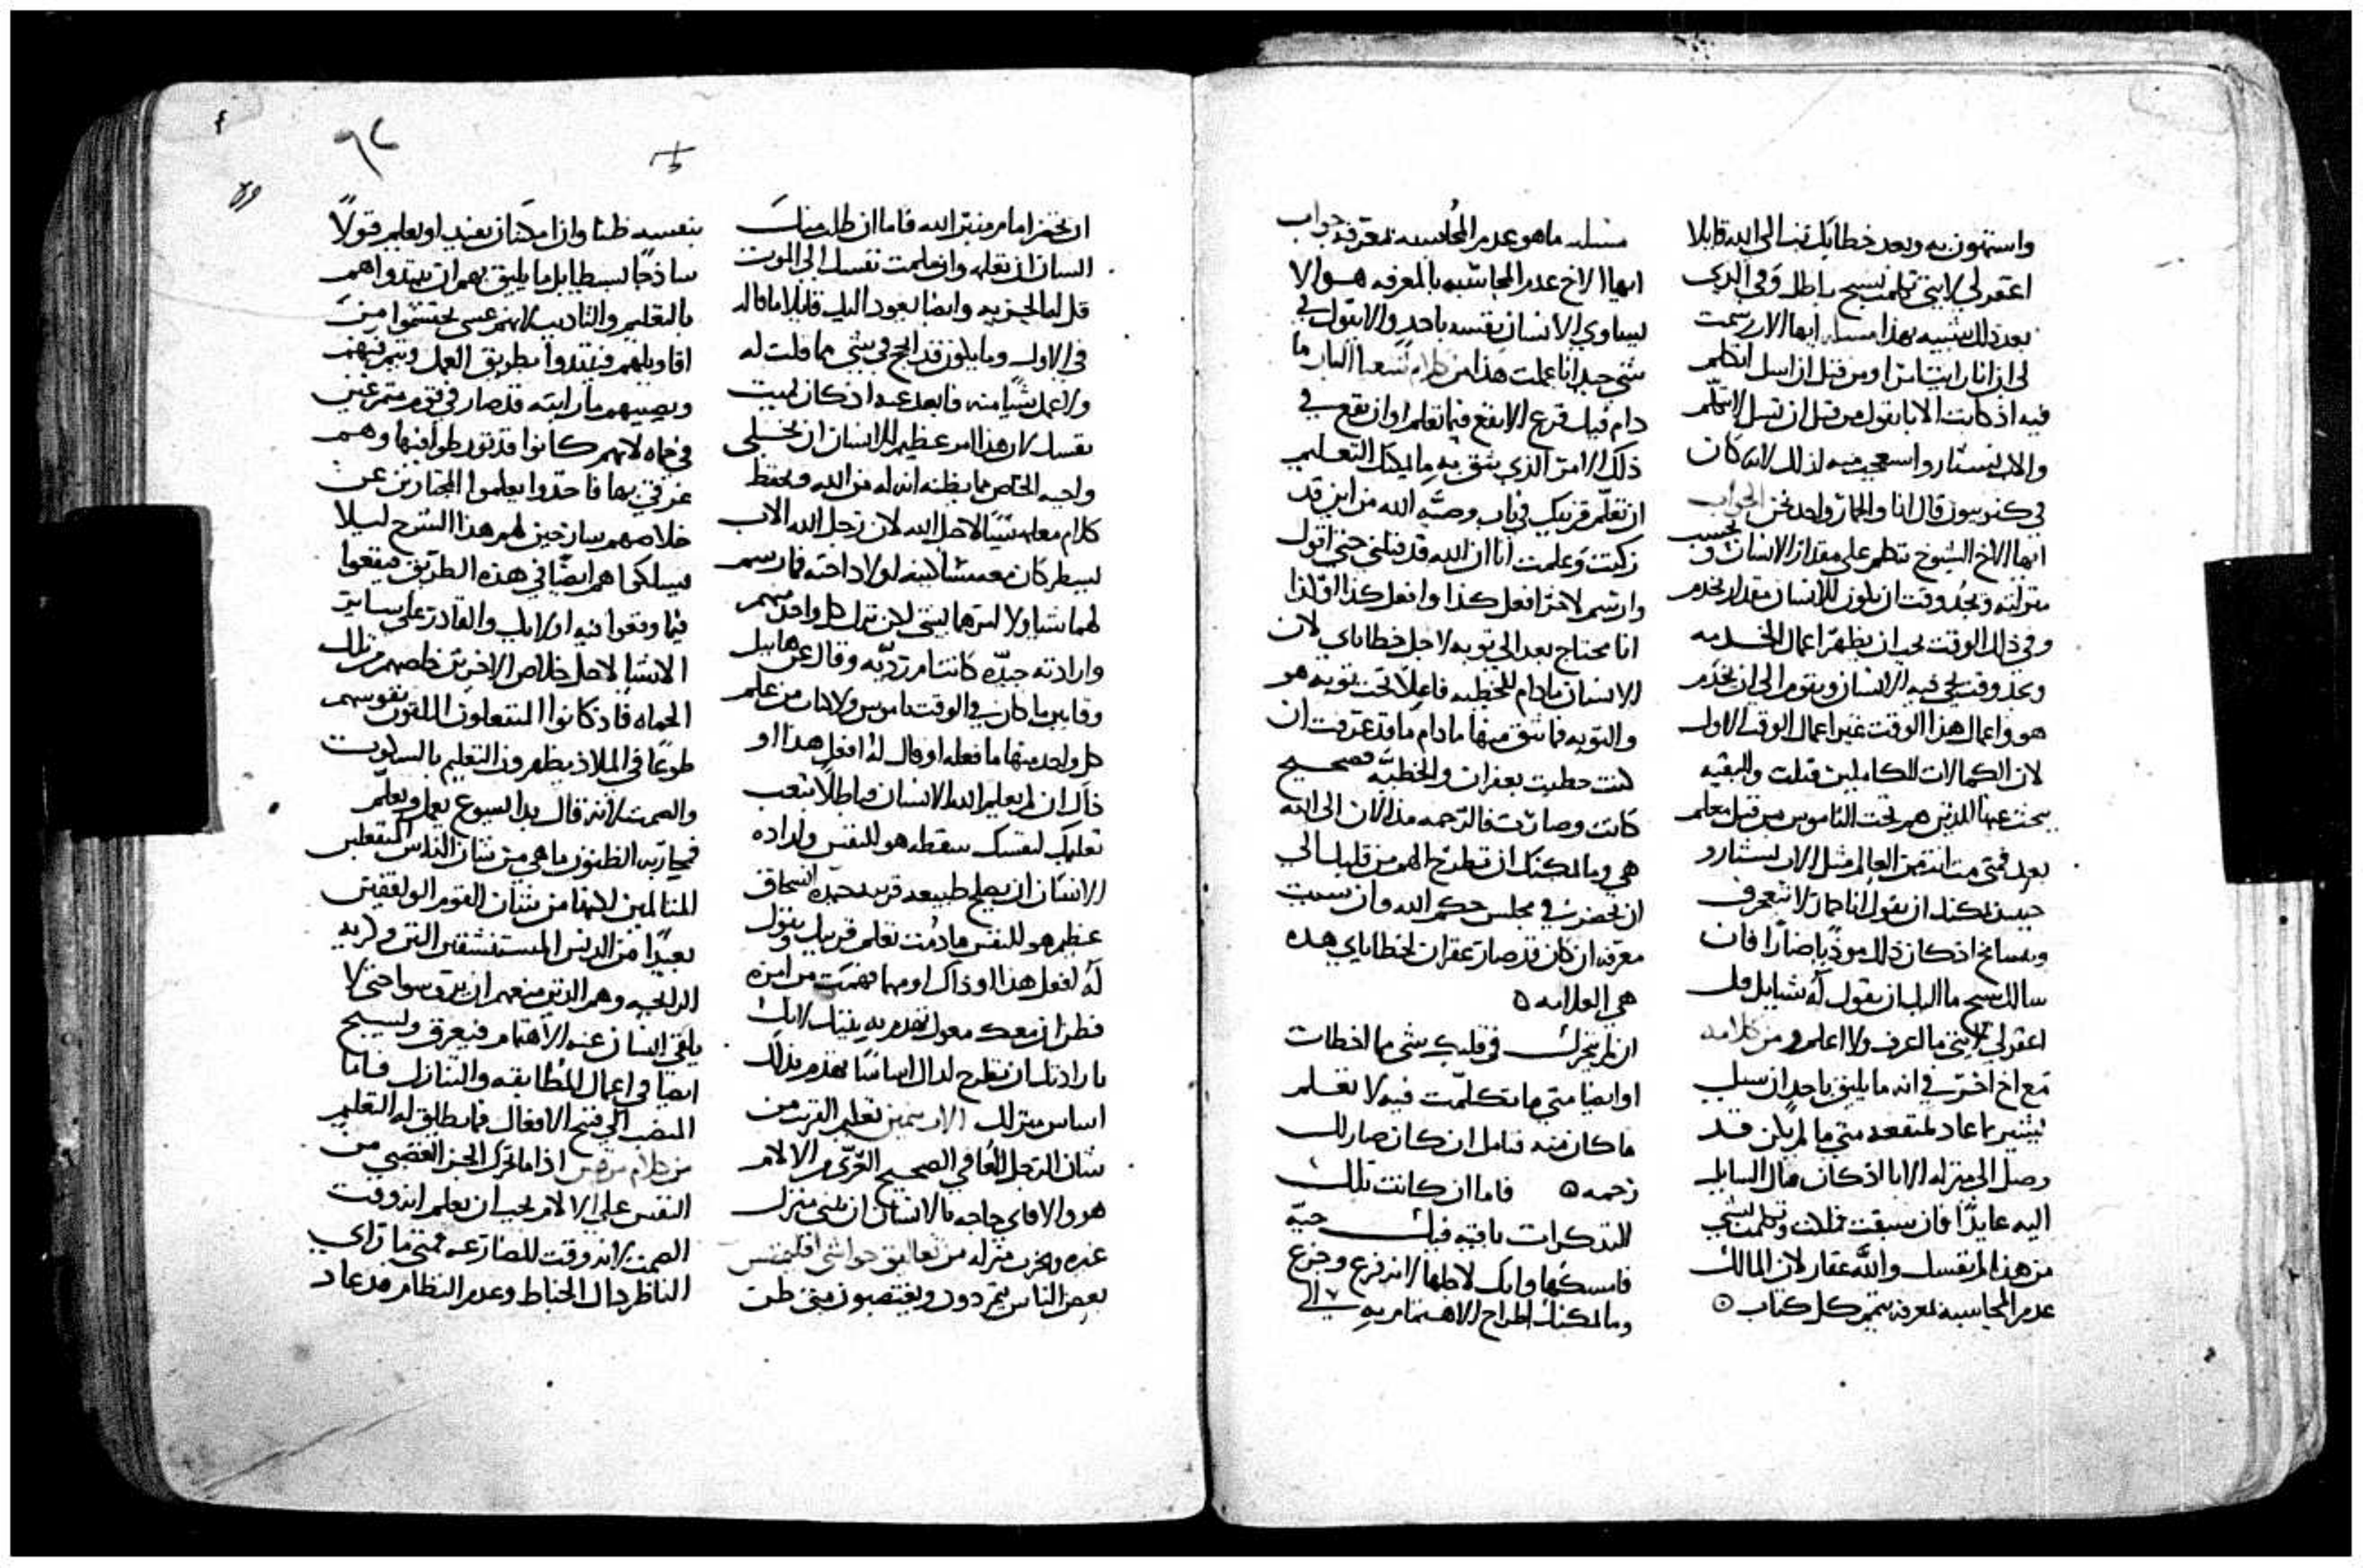 واستهون به وبعد خطاياك تضا الى الله قايلا
اغفر لي لانني تكلمت بشبح باطل وفي الذي
بعد ذلك شبيه بهذا مساله ايها الاب رسمت
لي ان انا رايت امرا ومن قبل ان اسل اتكلم
فيه اذ كانت الابا يقول من قبل ان تسل لا تتكلم
والاب ايستار واستعجب منه لذلك لانه كان
في كنوبيون قال انا والحمار واحد نحن الجواب
ايها الاخ الشيوخ تتكلم على مقدار الانسان وبحسب
منزلته ويجد وقت ان يكون للانسان مقدار يخدم
وفي ذلك الوقت يجب ان يظهر اعمال الخدمه
ويجد وقت يجي فيه الانسان ويقوم الى ان يخدم
هو واعمال هذا الوقت غير اعمال الوقت الاول
لان الكمالات للكاملين قيلت والبقيه
يبحث عنها الذين هم تحت الناموس من قبل معلم
بعد فمتى مت انت من العالم مثل الاب ايستارو
حينيذ يمكنك ان تقول انا حمار لا تنحرف
وتتسامخ اذ كان ذلك موذيا ضارا فان
سالك شبح ما اليك ان يقول له شيا بل قل
اغفر لي لانني ما اعرف ولا اعلم ومن كلامه
مع اخ اخر في انه ما يليق باحد ان يسل
ليشير بما عاد لمنفعه متى ما لم يكن قد
وصل الى منزله الابا اذ كان مال السايل
اليه عايدا فان سبقت فملت وتكلمت بشي
من هذا لم نفسك والله غفار لان المالك
عدم المحاسبه لمعرفه يتمم كل كتاب ۞
مسله ما هو عدم المحاسبه لمعرفه جواب
ايها الاخ عدم المحاسبه بالمعرفه هو الا
يساوي الانسان نفسه باحد والا يقول في
شي جيد انا عملت هذا من كلام اشعيا البار ما
دام فيك قرع الا يفع فيما تعلم او ان تقع في
ذلك الامر الذي يثق به ما يمكنك التعليم
ان تعلم قريبك في باب وصيه الله من اين قد
زكيت وعلمت انا ان الله قد قبلني حتى اقول
وارسم لاخر افعل كذا وافعل كذا اذا
انا محتاج بعد الى توبه لاجل خطاياي لان
الانسان ما دام للخطيه فاعلا تحت توبه هو
والتوبه فما يثق منها ما دام ما قد عرفت ان
كنت حظيت بغفران والخطيه فصحيح
كانت وصارت فالترجمه مذ الان الى الله
هي وما يمكنك ان تطرح الهم من قلبك الى
ان تحضر في مجلس حكم الله وان نسيت
معرفه ان كان قد صار غفران لخطاياي هذه
هي العلامه ۞
ان لم يتحرك في قلبك شي مما اخطات
او ايضا متى ما تكلمت فيه لا تعلم
ما كان منه فتامل ان كان صار لك
رحمه ۞ فاما ان كانت تلك
التذكرات باقيه فيك حيه
فامسكها وابك لاجلها لانه فزع وجزع
وما يمكنك اطراح الاهتمام به الى
٩٢
ان تحضر امام منبر الله فاما ان طلب منك
انسان ان تعلمه وان علمت نفسك الى الموت
قل له الخبر به وايضا يعود اليك قايلا ما قاله
في الاول وما يكون قد انجح في شي مما قلت له
ولا عمل شيا منه فابعد عنه اذ كان يميت
نفسك لان هذا امر عظيم للانسان ان يخلي
واجبه الخاص مما يظنه انه له من الله ويحفظ
كلام معلمه شيا لاجل الله لان رجل الله الاب
ليسطر كان معه مشاكينه لولا داخته فما رسم
لهما شيا ولا امرهما بشي لكن ترك كل واحد منهم
وارادته جيده كانت ام رديه وقال عن هابيل
وقايين ما كان في الوقت ناموس ولا كان من علم
كل واحد منهما ما فعله او قال له افعل هذا او
ذاك ان لم يعلم الله الانسان فباطلا تتعب
تعليمك لنفسك سقطه هو للنفس واراده
الانسان ان يصلح طبيعه قريبه جيده اسحاق
عظيم هو للنفس ما دمت تعلم قريبك وتقول
له افعل هذا او ذاك او مهما فهمت من امره
فظن ان معك معول تهدم به بيتك لانك
بارادتك ان تطرح لذاك اساسا تهدم بذلك
اساس منزلك الاب سمين تعليم القريب من
شان الرجل المعافي الصحيح العري من الالام
هو والا فاي حاجه بالانسان ان يبني منزل
غيره ويخرب منزله من تعاليق حواشي افلمنس
بعض الناس يتمردون ويغتصبون متى ظن
بنفسه ظنا وان امكنا ان نفيد او نعلم قولا
ساذجا بسيطا بل ما يليق بهم ان يبتدوا هم
بالتعليم والتاديب لانهم عسى يحتشموا من
اقاويلهم فيبتدوا بطريق العمل ويتم فيهم
ويصيبهم ما رايته قد صار في قوم متمرغين
في حماه لانهم كانوا قد تورطوا فيها وهم
غرقى بها فاخذوا يعلموا المجتازين عن
خلاصهم شارحين لهم هذا الشرح ليلا
يسلكوا هم ايضا في هذه الطريق فيقعوا
فيما وقعوا فيه اولايك والقادر على ساير
الاشيا لاجل خلاص الاخرين خلصهم من تلك
الحماه فاذ كانوا المنتعلون الملقون نفوسهم
طوعا في الملاذ يظهرون التعليم بالسكوت
والصمت لانه قال بدا ايسوع يعمل ويعلم
فمحاربه الظنون ما هي من شان الناس المنفعلين
المتالمين لكنها من شان القوم الواقفين
بعيدا من الدنس المستنشقين النتن وكريه
الرايحه وهم الذين منعهم ان يتوسوا حتى لا
يلقي انسان عنه الاهتمام فيغرق ويسبح
ايضا في اعمال المطابقه والتنازل فاما
المنصب الى قبيح الافعال فما يطلق له التعليم
من كلام مرقس اذا ما تحرك الجزء الغضبي من
النفس على الالام يجب ان يعلم انه وقت
الصمت لانه وقت للمصارعه فمتى ما راي
الناظر حال الخباط وعدم النظام قد عاد